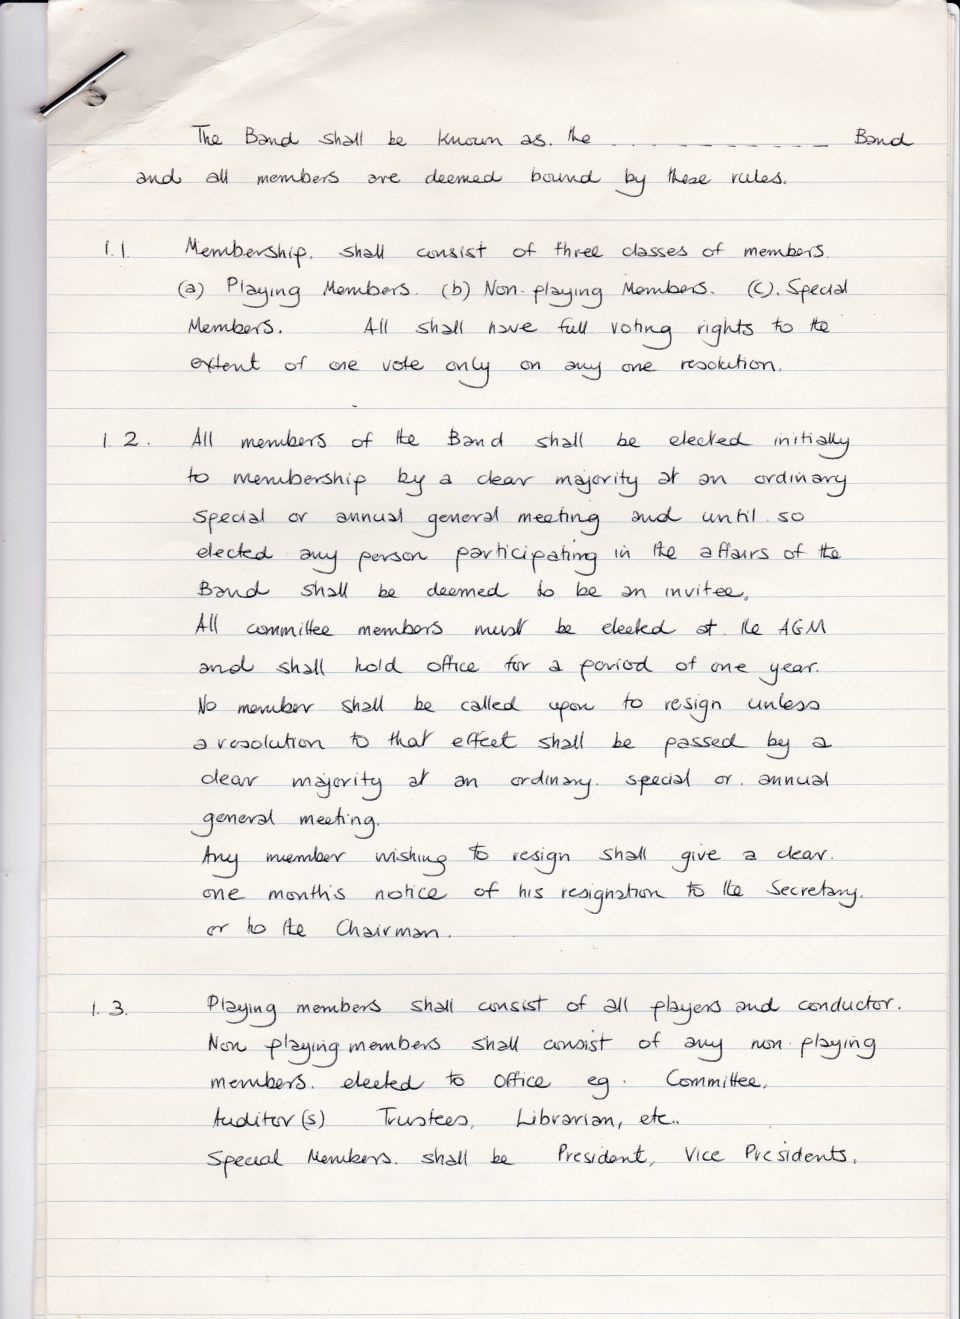 The Band shall be known as. the _ _ _ _ _ _ _ _ _ _ Band
and all members are deemed bound by these rules.
1.1. Membership. shall consist of three classes of members.
(a) Playing Members. (b) Non-playing Members. (c). Special
Members. All shall have full voting rights to the
extent of one vote only on any one resolution.
1.2. All members of the Band shall be elected initially
to membership by a clear majority at an ordinary
special or annual general meeting and until so
elected any person participating in the affairs of the
Band shall be deemed to be an invitee.
All committee members must be elected at the AGM
and shall hold office for a period of one year.
No member shall be called upon to resign unless
a resolution to that effect shall be passed by a
clear majority at an ordinary. special or. annual
general meeting.
Any member wishing to resign shall give a clear.
one month's notice of his resignation to the Secretary.
or to the Chairman.
1.3. Playing members shall consist of all players and conductor.
Non playing members shall consist of any non-playing
members. elected to office eg. Committee,
Auditor(s) Trustees, Librarian, etc..
Special Members. shall be President, Vice Presidents.